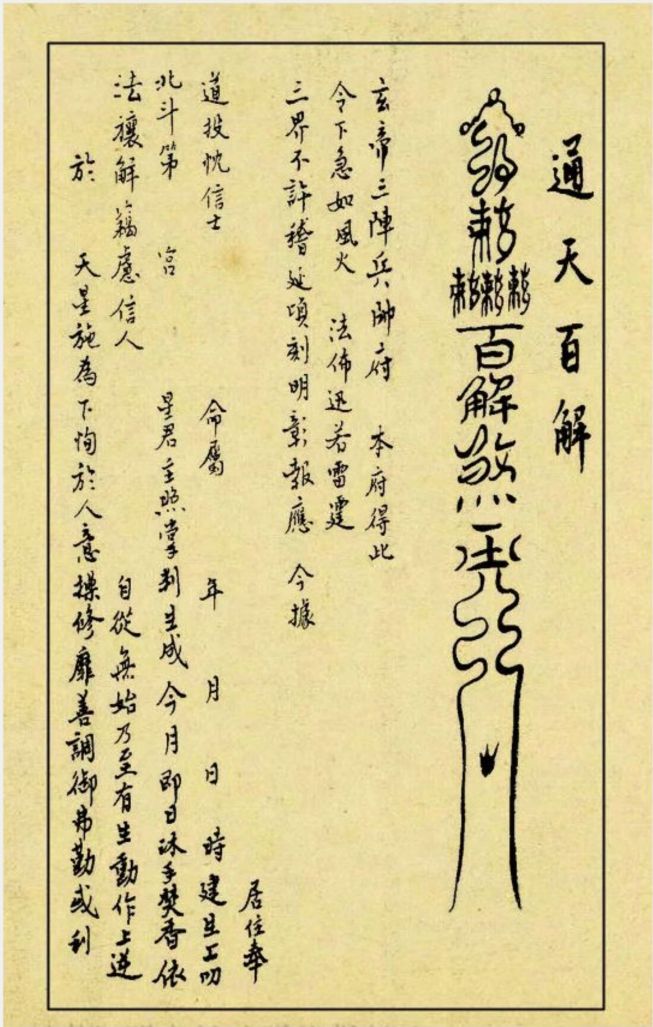 通天百解
敕
敕敕敕
百解煞
玄帝三陣兵帥府 本府得此
令下急如風火 法佈迅若雷霆
三界不許稽延頃刻明彰報應 今據
居住奉
道投忱信士 命屬 年 月 日 時建生上叨
北斗第 宮 星君主照掌判生成今月即日沐手焚香依
法禳解慮信人 自從無始乃至有生動作上逆
於 天星施為下恂於人意操修靡善調御弗勤或利